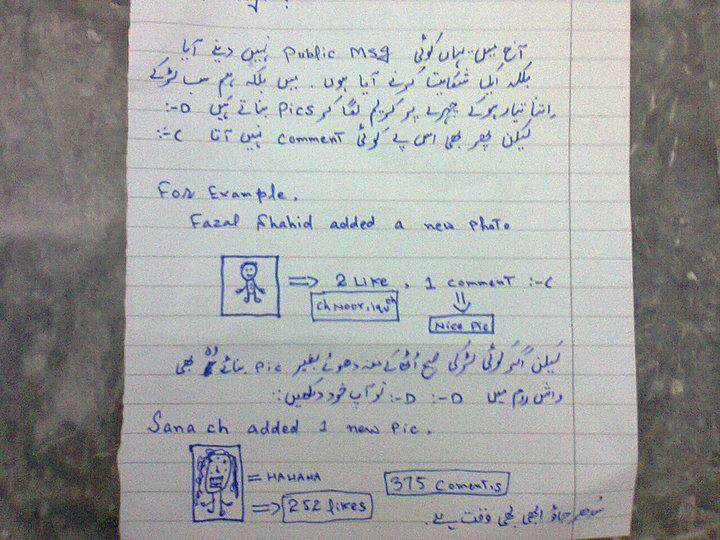 آج میں یہاں کوئی Public Msg نہیں دینے آیا
بلکہ ایک شکایت کرنے آیا ہوں. میں بلکہ ہم سب لڑکے
اتنا تیار ہوکے چہرے پر کریم لگا کر Pics بناتے ہیں :-D
لیکن پھر بھی اس پے کوئی comment نہیں آتا :-(
For Example.
Fazal Shahid added a new photo
=> 2 Like , 1 comment :-(
Ch Noor,
Nice Pic
لیکن اگر کوئی لڑکی صبح اُٹھ کے منہ دھوئے بغیر Pic بنائے وہ بھی
واش روم میں :-D :-D تو آپ خود دیکھیں::
Sana ch added 1 new Pic.
= HAHAHA
375 Coments
=> 252 likes
سُدھر جاؤ ابھی بھی وقت ہے.